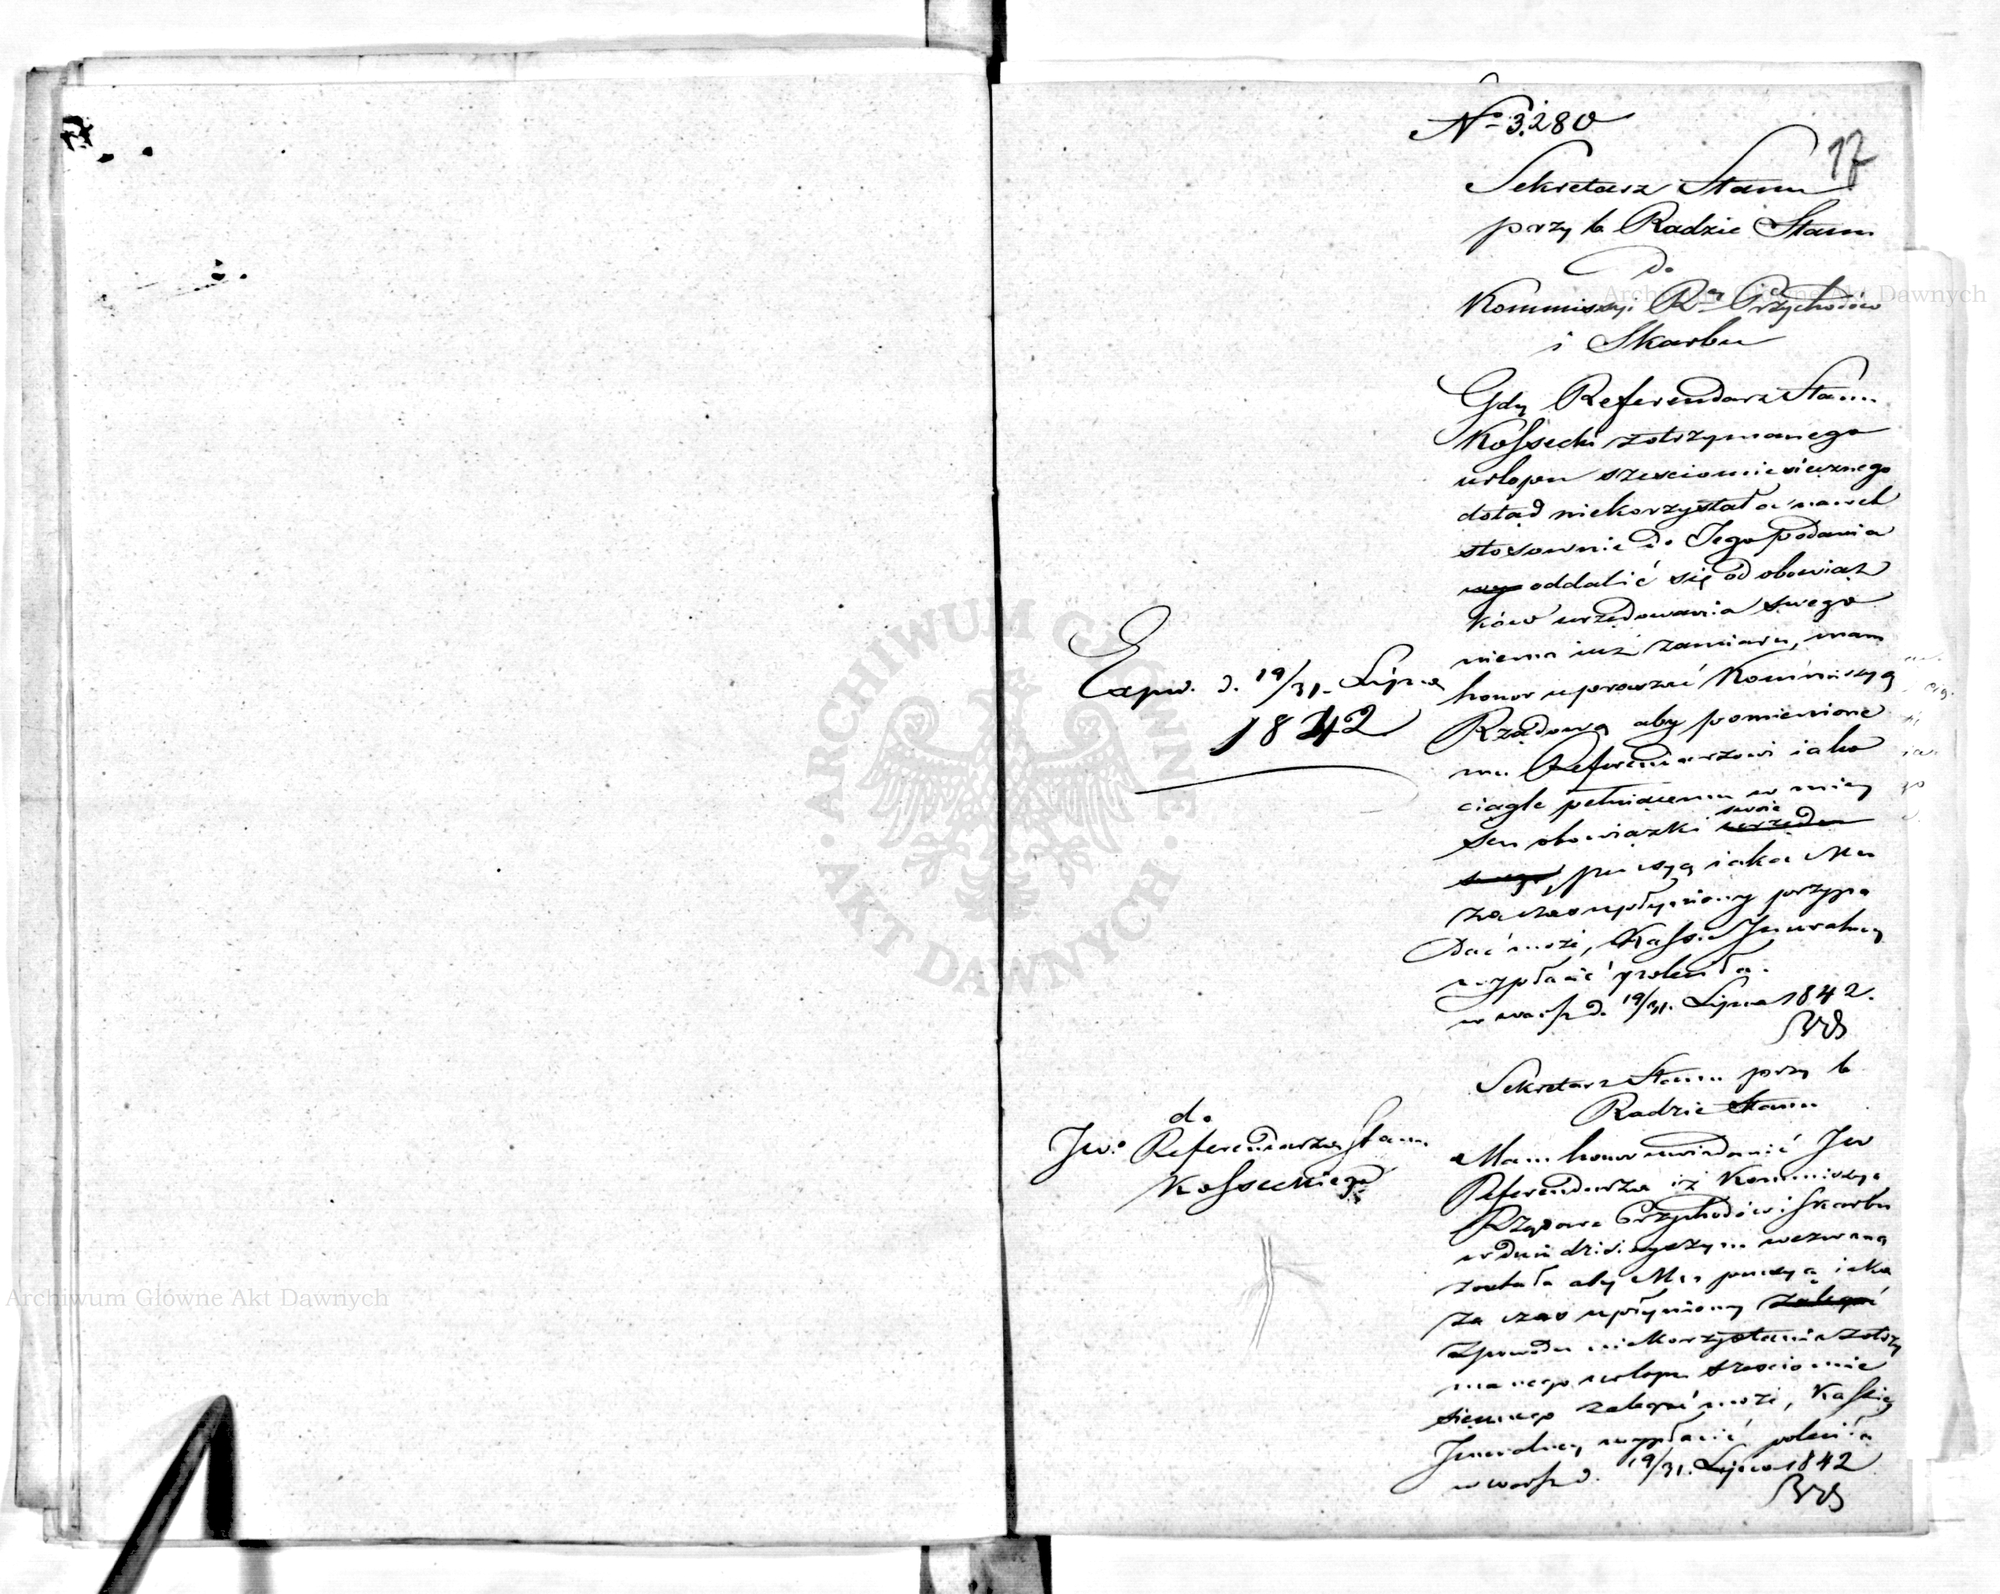 No 3,280
17
Sekretarz Stanu
przy b. Radzie Stanu
do
Kommissyi Rej Przychodów
i Skarbu
Gdy Referendarz Stanu
Kossecki z otrzymanego
urlopu szesciomiesięcznego
dotąd niekorzystał a nawet
stosownie do Jego podania
oddalić się od obowiąz
ków urzędowania swego
niema iuż zamiaru, mam
honor uprowszać Kommissyą
Rządową aby pomienione
mu Referendarzowi iako
ciągle pełniącemu w miey
scu obowiązki swoie urzędu
swego, pensyą iaka Mu
za czas upłyniony przypa
dać może, Kassie Jeneralney
wypłacić poleciła.
w Warsz d. 19/31. Lipca 1842.
Expd. d. 19/31. Lipca
1842
Sekretarz Stanu przy b.
Radzie Stanu
do
Jwo Referendarza Stanu
Kosseckiego
Mam honor uwiadomić Jw
Referendarza iż Kommissya
Rządowa Przychodów i Skarbu
w dniu dzisieyszym wezwaną
została aby Mu pensyą iaka
za czas upłyniony zalegać
z powodu niekorzystania z otrzy
manego urlopu szesciomie
sięcznego zalegać może, Kassie
Jeneralney wypłacić poleciła
w Warsz d. 19/31. Lipca 1842
Archiwum Główne Akt Dawnych
Archiwum Główne Akt Dawnych
ARCHIWUM GŁÓWNE
AKT DAWNYCH